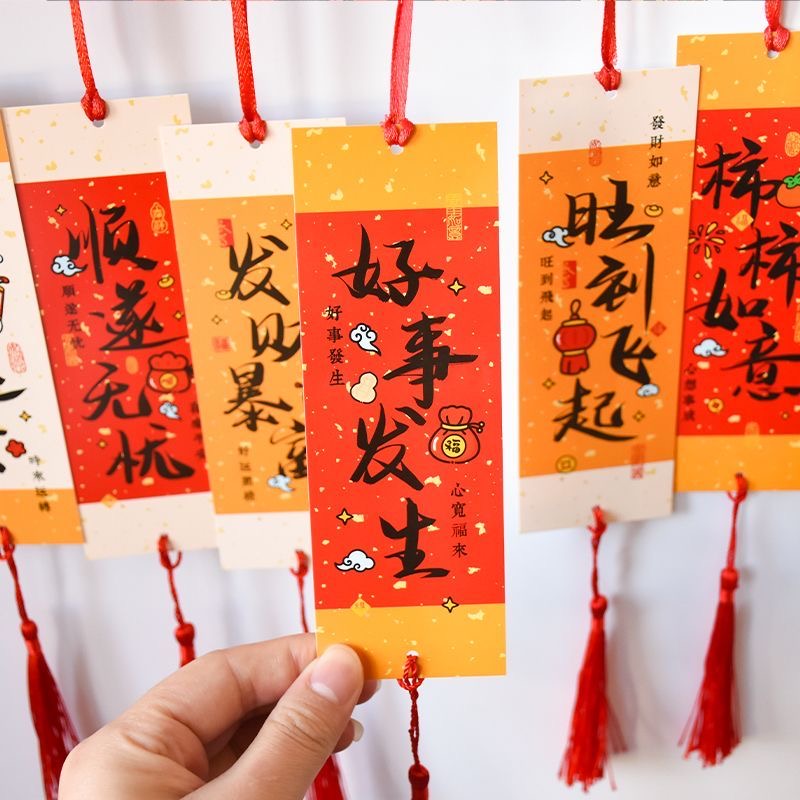 時來運轉
顺遂无忧
順遂无忧
发财暴富
好运累積
好事发生
好事發生
福
心寬福來
旺到飞起
發財如意
旺到飛起
柿柿如意
心想事成